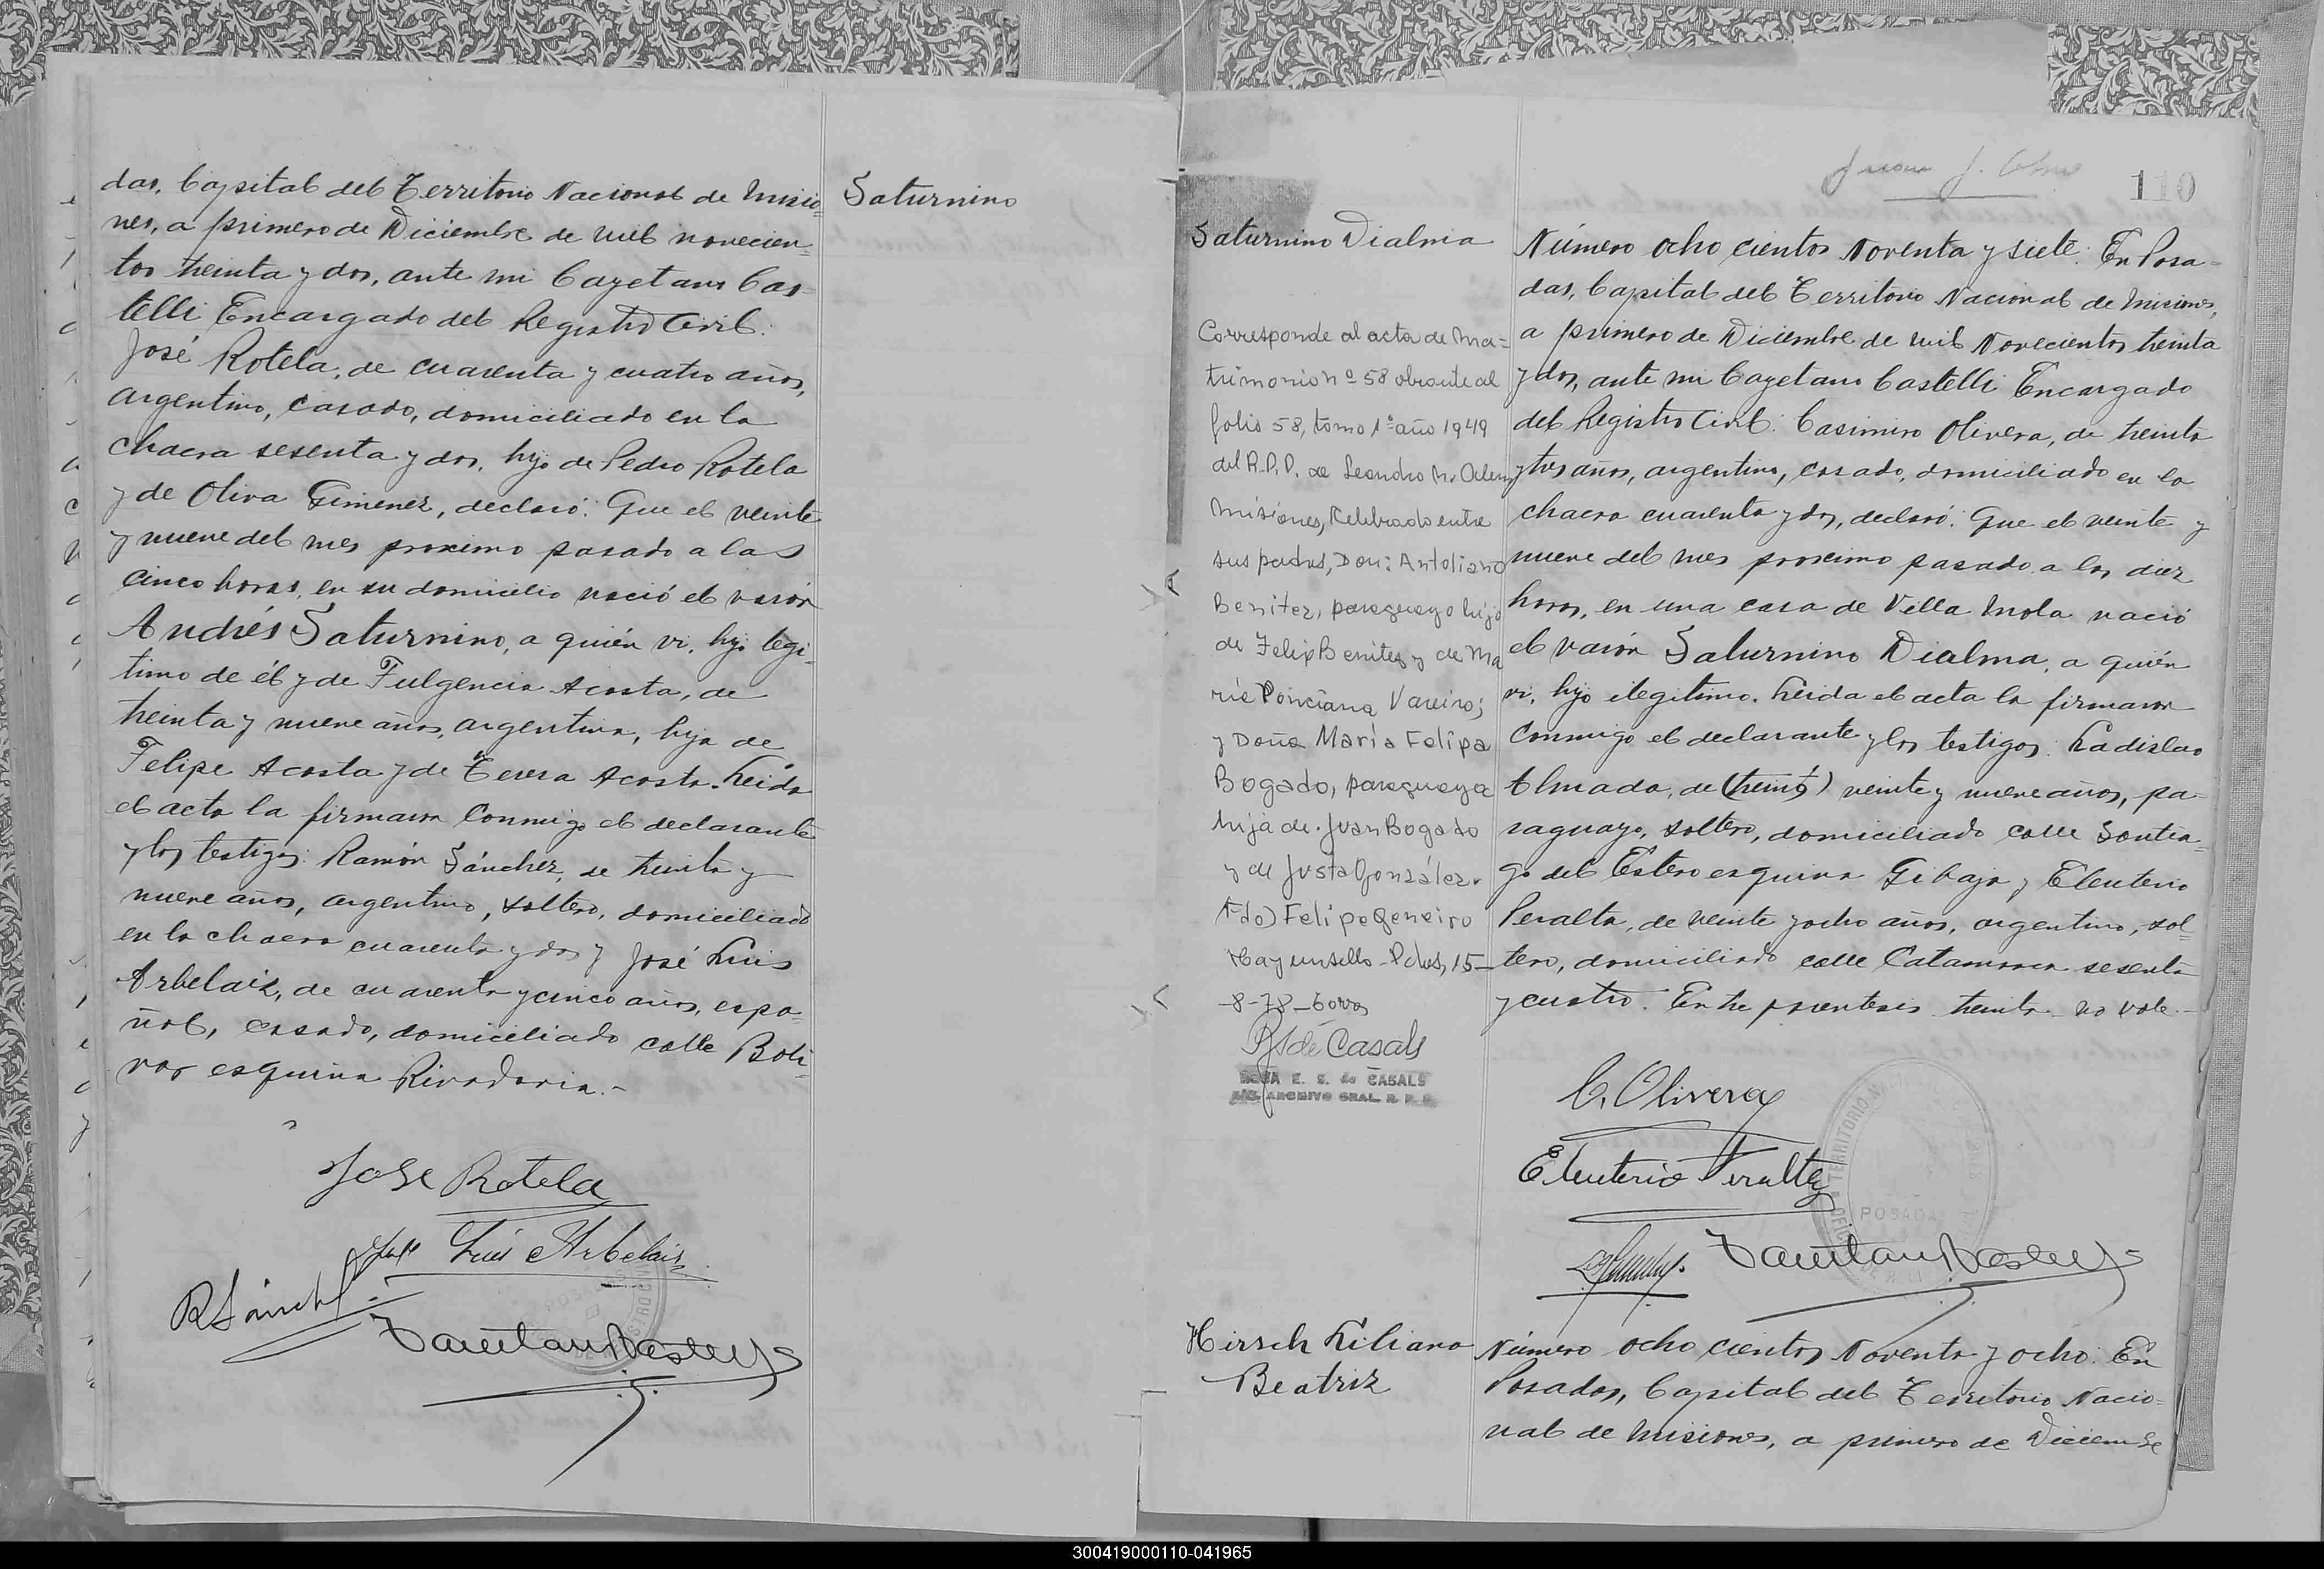 das, Capital del Territorio Nacional de Misio-
nes, a primero de Diciembre de mil novecien-
tos treinta y dos, ante mi Cayetano Cas-
telli Encargado del Registro Civil:
José Rotela, de cuarenta y cuatro años,
argentino, casado, domiciliado en la
chacra sesenta y dos, hijo de Pedro Rotela
y de Oliva Gimenez, declaró: Que el veinte
y nueve del mes proximo pasado a las
cinco horas, en su domicilio nació el varón
Andrés Saturnino, a quién vi, hijo legi-
timo de él y de Fulgencia Acosta, de
treinta y nueve años, argentina, hija de
Felipe Acosta y de Teresa Acosta. Leida
el acta la firmaron conmigo el declarante
y los testigos: Ramón Sánchez, de treinta y
nueve años, argentino, soltero, domiciliado
en la chacra cuarenta y dos y José Luis
Arbelaiz, de cuarenta y cinco años, espa-
ñol, casado, domiciliado calle Boli-
var esquina Rivadavia.-
Jose Rotela
José Luis Arbelaiz
R Sánchez
Cayetano Castelli
Saturnino
110
Saturnino Dialma
Corresponde al acta de ma-
trimonio nº 58 obrante al
folio 58, tomo 1º año 1949
del R.P.P. de Leandro N. Alem
Misiones, celebrado entre
sus padres, Don: Antoliano
Benitez, paraguayo hijo
de Felix Benitez y de Ma
ría Ponciana Vareiro;
y Doña María Felipa
Bogado, paraguaya
hija de Juan Bogado
y de Justa González.
Fdo) Felipe Geneiro
Hay un sello - Pdas, 15-
-8-78-
RS de Casals
ROSA E. S. de CASALS
ARCHIVO GRAL. R. P. P.
Número ocho cientos Noventa y siete: En Posa-
das, Capital del Territorio Nacional de Misiones,
a primero de Diciembre de mil Novecientos treinta
y dos, ante mi Cayetano Castelli Encargado
del Registro Civil: Casimiro Olivera, de treinta
y tres años, argentino, casado, domiciliado en la
chacra cuarenta y dos, declaró: Que el veinte y
nueve del mes proximo pasado a las diez
horas, en una casa de Villa Mola nació
el varón Saturnino Dialma, a quién
vi, hijo ilegitimo. Leida el acta la firmaron
conmigo el declarante y los testigos: Ladislao
Almada, de (treinta) veinte y nueve años, pa-
raguayo, soltero, domiciliado calle Santia-
go del Estero esquina Gibaja y Eleuterio
Peralta, de veinte y ocho años, argentino, sol-
tero, domiciliado calle Catamarca sesenta
y cuatro. Entre parentesis treinta no vale.-
C. Olivera
Eleuterio Peralta
Cayetano Castelli
POSADAS
Hirsch Liliana
Beatriz
Número ocho cientos Noventa y ocho: En
Posadas, Capital del Territorio Nacio-
nal de Misiones, a primero de Diciembre
300419000110-041965